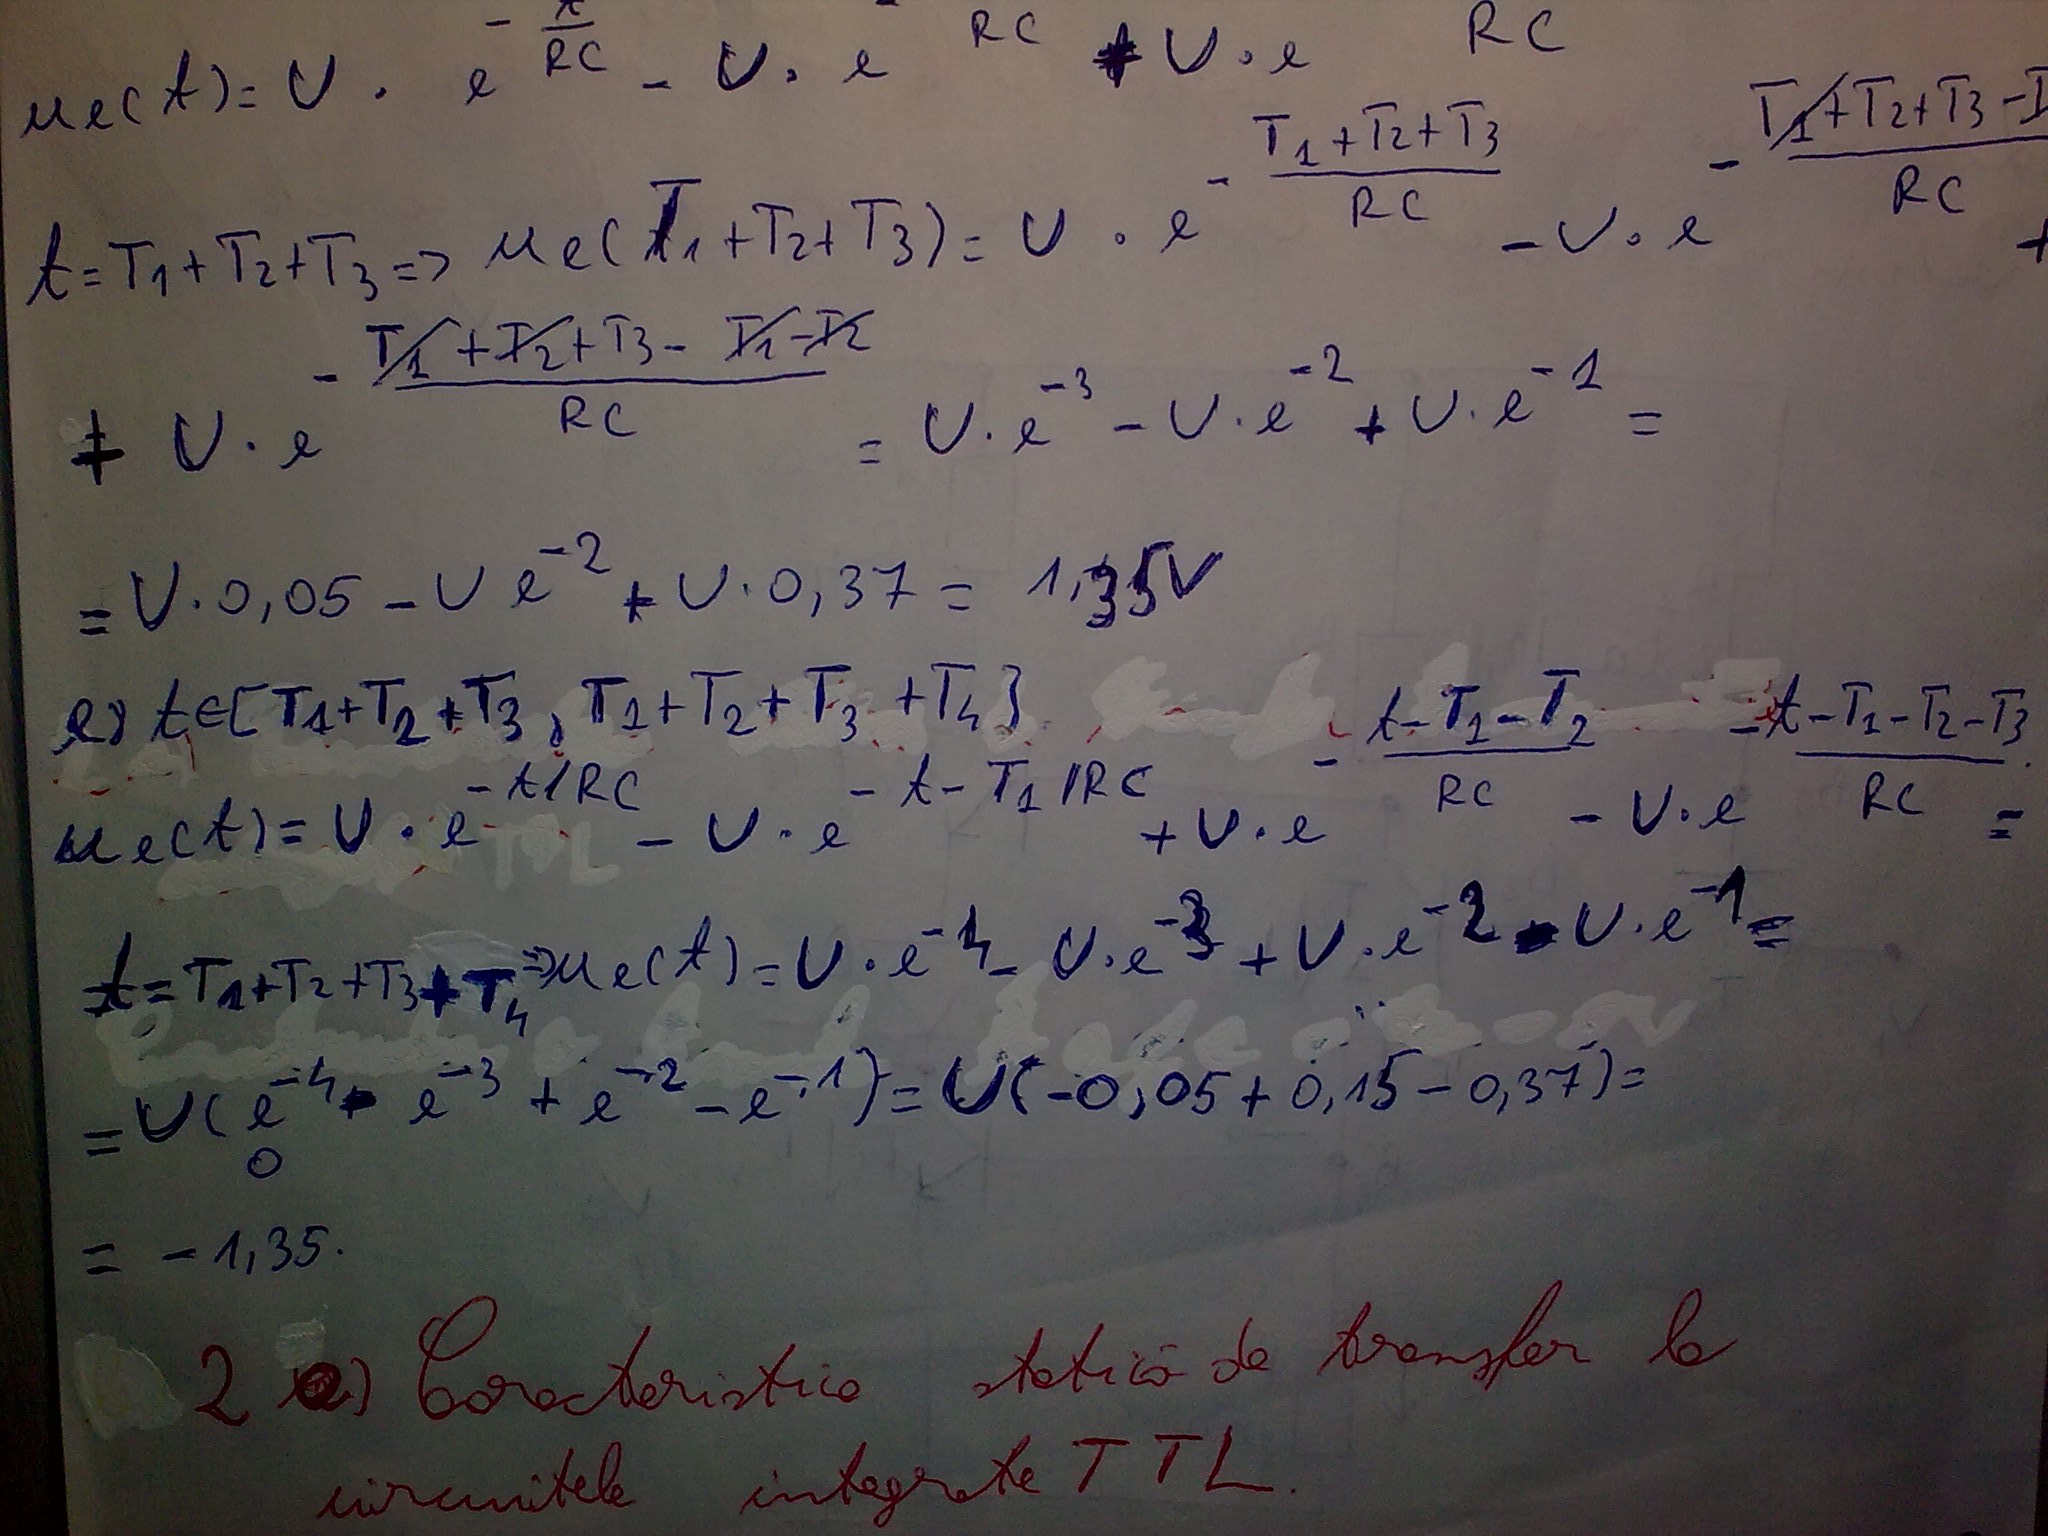 ue(t) = U · e^(-t/RC) - U · e^(- RC) + U · e^( RC)
t = T1+T2+T3 => ue(T1+T2+T3) = U · e^(-(T1+T2+T3)/RC) - U · e^(-(T1+T2+T3-T)/RC) +
+ U · e^(-(T1+T2+T3-T1-T2)/RC) = U · e^-3 - U · e^-2 + U · e^-1 =
= U · 0,05 - U e^-2 + U · 0,37 = 1,35V
e) t∈[T1+T2+T3, T1+T2+T3+T4]
ue(t) = U · e^(-t/RC) - U · e^(-t-T1/RC) + U · e^(-(t-T1-T2)/RC) - U · e^(-(t-T1-T2-T3)/RC) =
t = T1+T2+T3+T4 => ue(t) = U · e^-4 - U · e^-3 + U · e^-2 - U · e^-1 =
= U(e^-4 - e^-3 + e^-2 - e^-1) = U(-0,05 + 0,15 - 0,37) =
0
= -1,35.
2 a) Caracteristica statică de transfer la
circuitele integrate TTL.